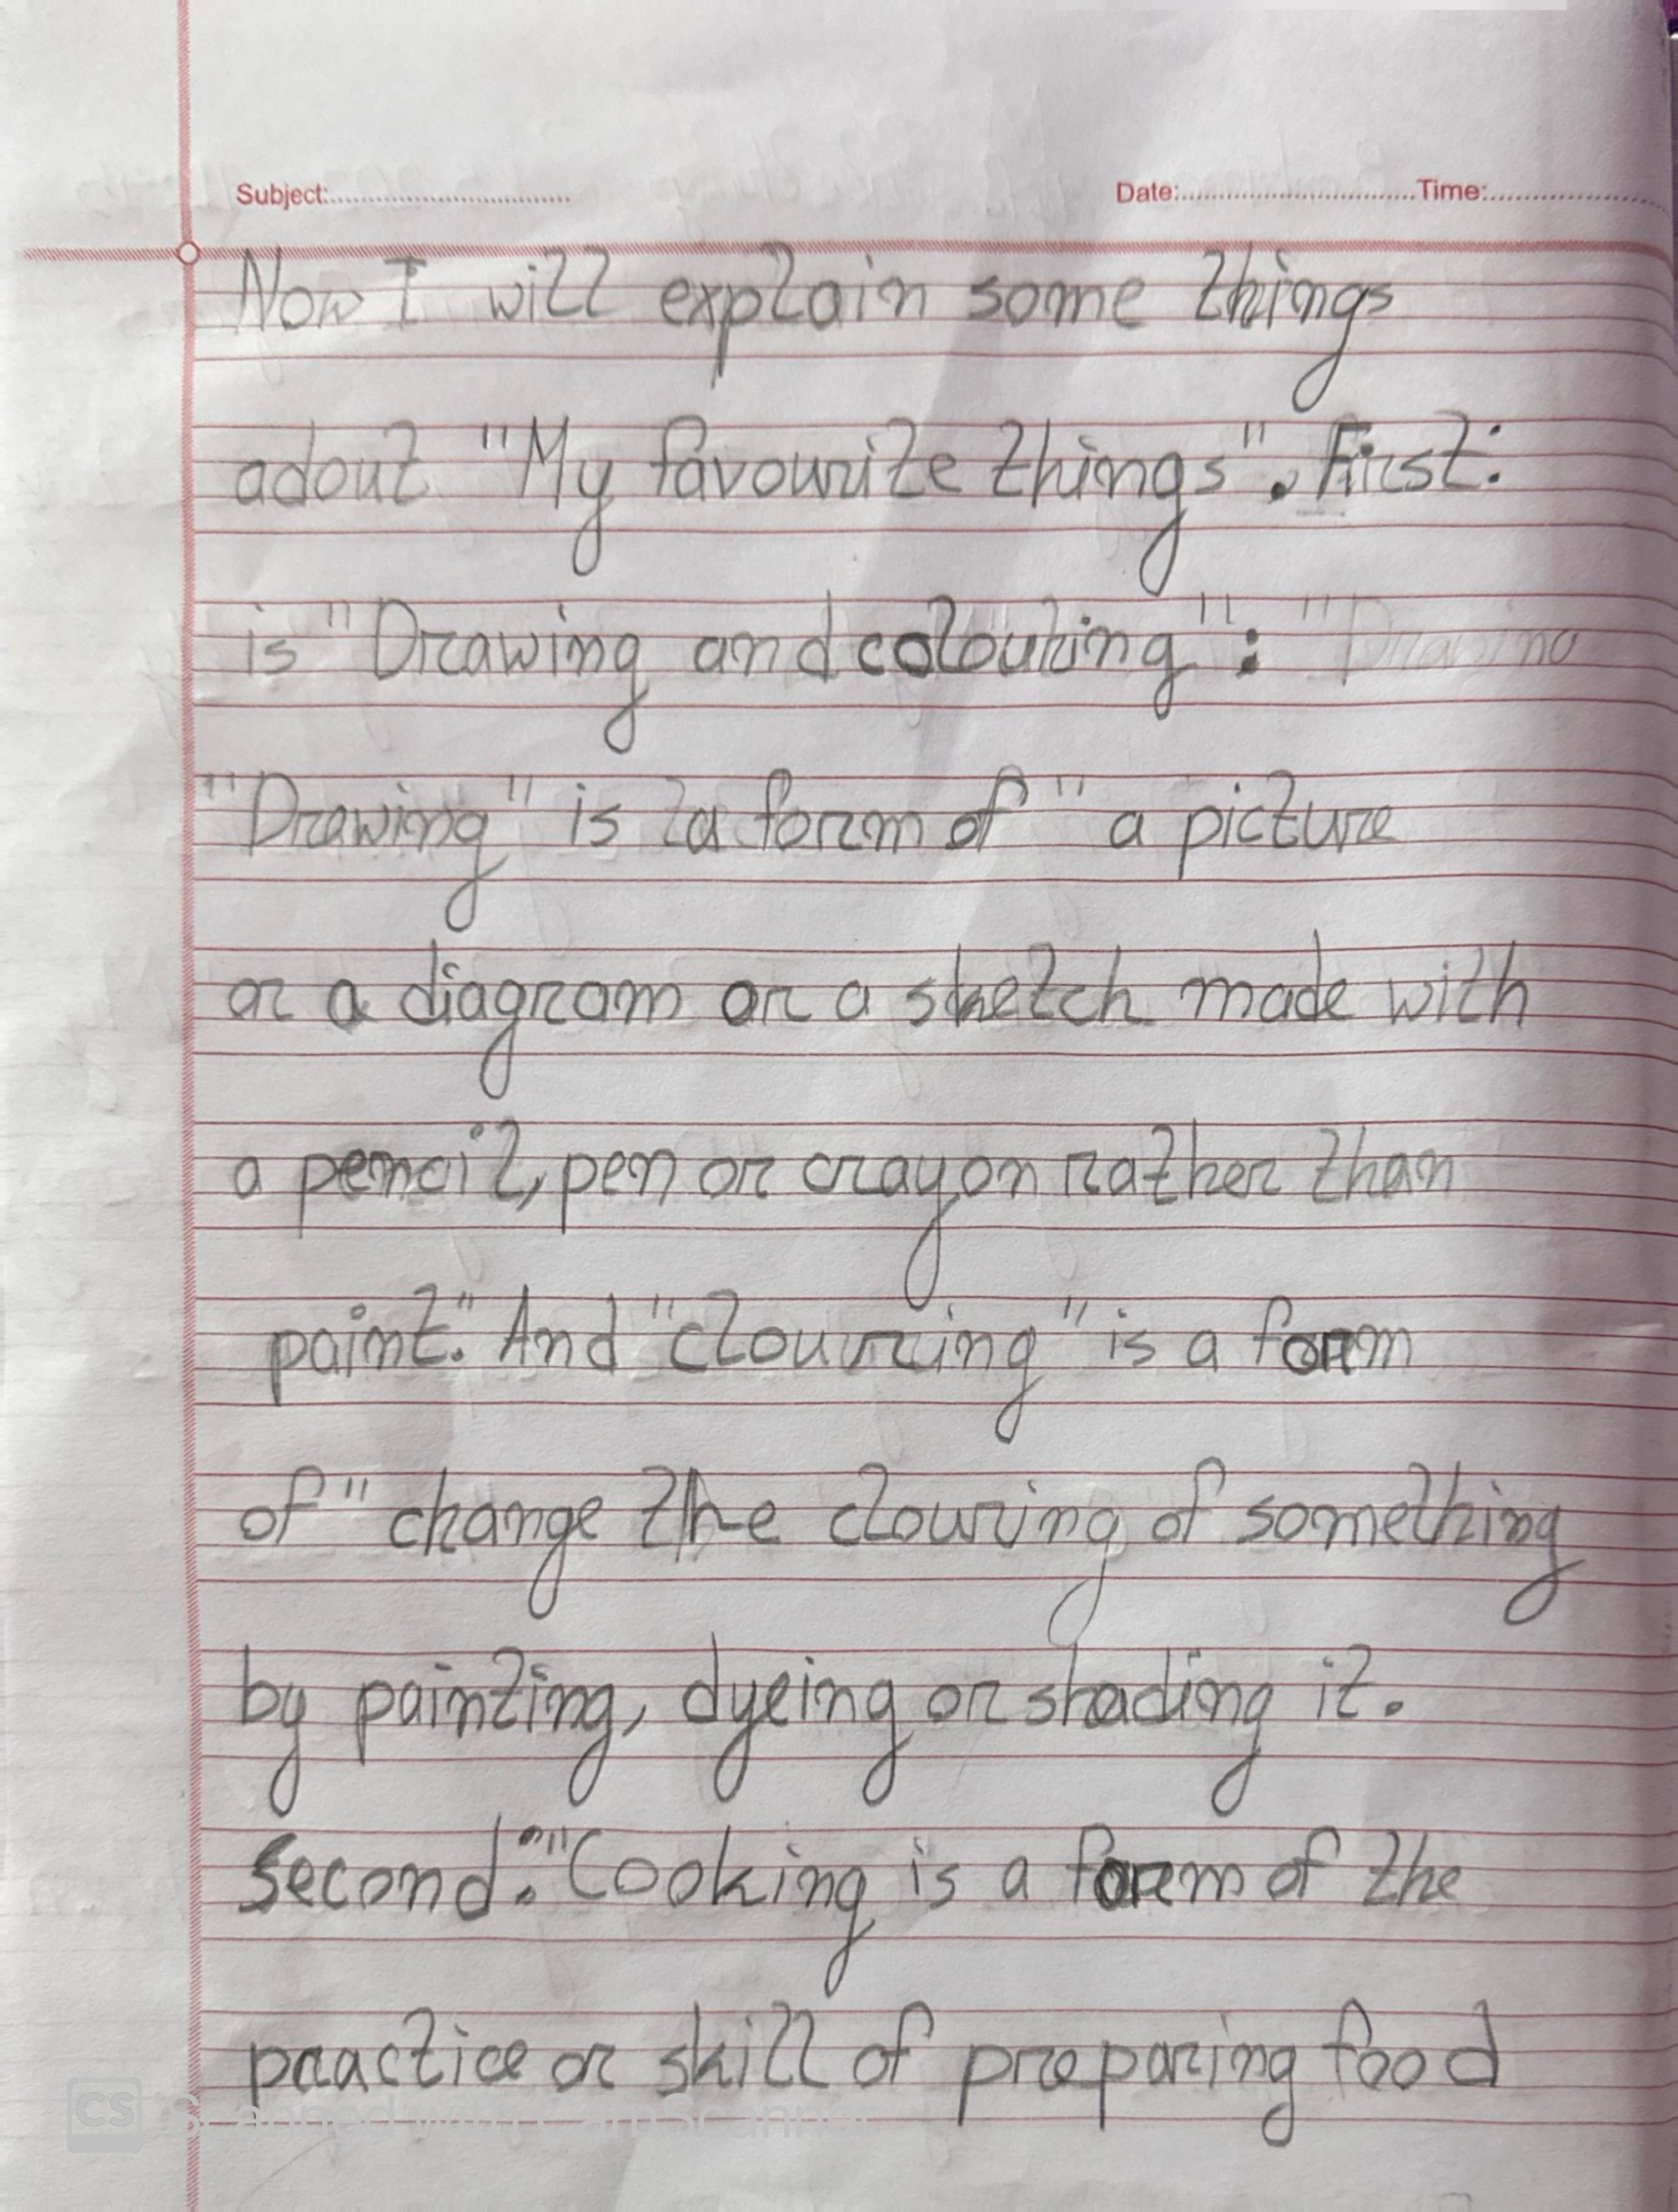 Subject:.............................. Date:.................................Time:.........................
Now I will explain some things
adout "My favourite things". First:
is "Drawing and colouring": "Drawing
"Drawing" is a form of " a picture
or a diagram or a sketch made with
a pencil, pen or crayon rather than
paint." And "clouuring" is a form
of " change the clouring of something
by painting, dyeing or shading it.
Second: "Cooking is a form of the
practice or skill of preparing food
CS Scanned with CamScanner